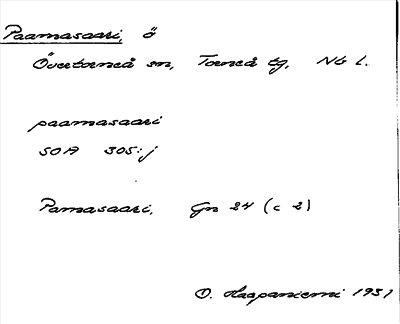 Paamasaari, ö
Övertorneå sn, Torneå tg, Nb l.
paamasaari
SOA 305:j
Pamasaari, Gn 24 (c 2)
O. Haapaniemi 1931